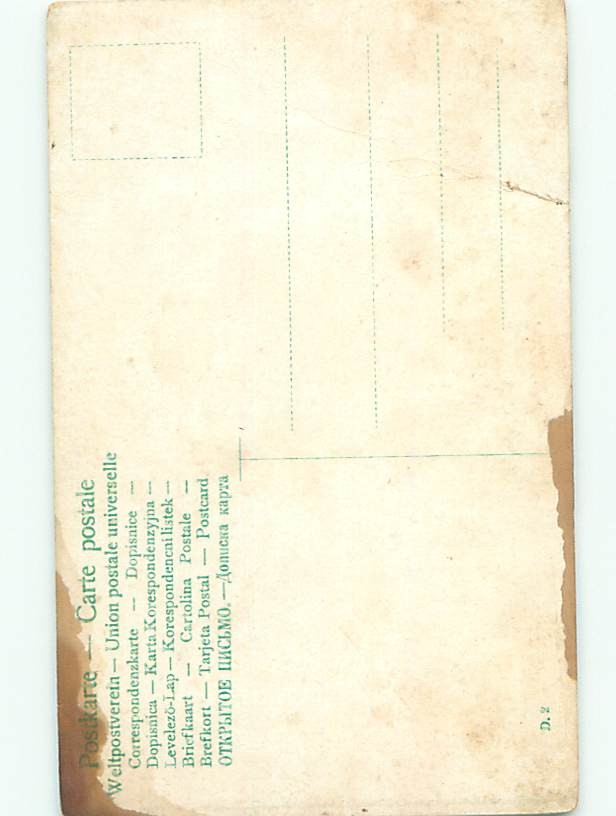 Postkarte — Carte postale
Weltpostverein — Union postale universelle
Correspondenzkarte — Dopisnice —
Dopisnica — Karta Korespondenzyjna —
Levelező-Lap — Korespondencnilistek —
Briefkaart — Cartolina Postale —
Brefkort — Tarjeta Postal — Postcard
ОТКРЫТОЕ ПИСЬМО. — Дописна карта
D. 2